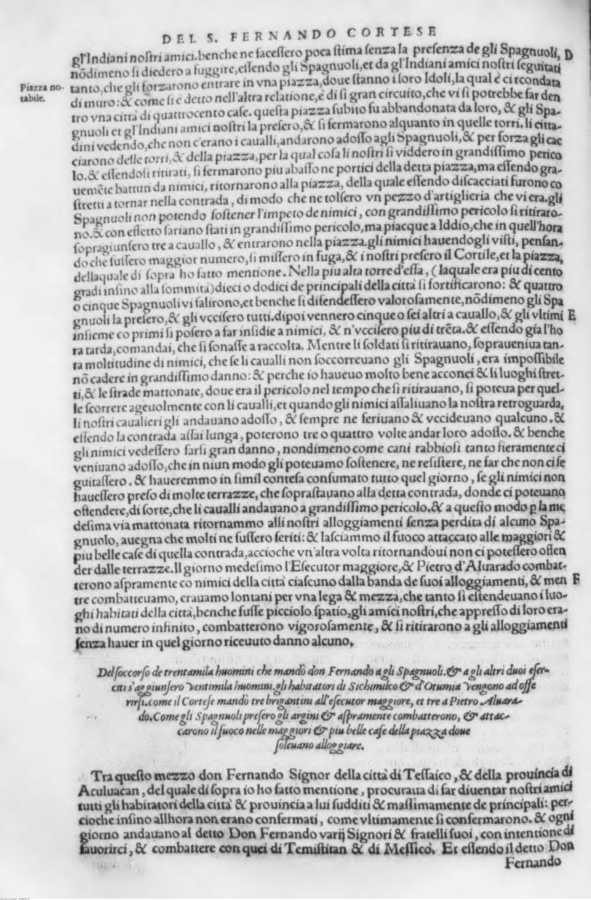 DEL S. FERNANDO CORTESE
gl'Indiani nostri amici. benche ne facessero poca stima senza la presenza de gli Spagnuoli, D
nõdimeno si diedero a fuggire, essendo gli Spagnuoli, et da gl'Indiani amici nostri seguitati
Piazza no-
tabile.
tanto, che gli forzarono entrare in vna piazza, doue stanno i loro Idoli, la qual è circondata
di muro: & come si è detto nell'altra relatione, è di si gran circuito, che vi si potrebbe far den
tro vna città di quattrocento case. questa piazza subito fu abbandonata da loro, & gli Spa-
gnuoli et gl'Indiani amici nostri la presero, & si fermarono alquanto in quelle torri. li citta-
dini vedendo, che non c'erano i caualli, andarono adosso agli Spagnuoli, & per forza gli cac
ciarono delle torri, & della piazza, per la qual cosa li nostri si viddero in grandissimo perico
lo. & essendosi ritirati, si fermarono piu abasso ne portici della detta piazza, ma essendo gra-
uemẽte battuti da nimici, ritornarono alla piazza, della quale essendo discacciati furono co
stretti a tornar nella contrada, di modo che ne tolsero vn pezzo d'artiglieria che vi era. gli
Spagnuoli non potendo sostener l'impeto de nimici, con grandissimo pericolo si ritiraro-
no. & con effetto sariano stati in grandissimo pericolo, ma piacque a Iddio, che in quell'hora
sopragiunsero tre a cauallo, & entrarono nella piazza. gli nimici hauendogli visti, pensan-
do che fussero maggior numero, si missero in fuga, & i nostri presero il Cortile, et la piazza,
della quale di sopra ho fatto mentione. Nella piu alta torre d'essa, (la quale era piu di cento
gradi insino alla sommità) dieci o dodeci de principali della città si fortificarono: & quattro
o cinque Spagnuoli vi salirono, et benche si difendessero valorosamente, nõdimeno gli Spa
gnuoli la presero, & gli vccisero tutti. dipoi vennero cinque o sei altri a cauallo, & gli vltimi E
insieme co primi si posero a far insidie a nimici, & n'vccisero piu di trẽta. & essendo gia l'ho
ra tarda, comandai, che si sonasse a raccolta. Mentre li soldati si ritirauano, soprauenìua tan-
ta moltitudine di nimici, che se li caualli non soccorreuano gli Spagnuoli, era impossibile
nõ cadere in grandissimo danno: & perche io haueuo molto bene acconci & li luoghi stret-
ti, & le strade mattonate, doue era il pericolo nel tempo che si ritirauano, si poteua per quel-
le scorrere ageuolmente con li caualli, et quando gli nimici assaliuano la nostra retroguarda,
li nostri caualieri gli andauano adosso, & sempre ne feriuano & vccideuano qualcuno. &
essendo la contrada assai lunga, poterono tre o quattro volte andar loro adosso. & benche
gli nimici vedessero farsi gran danno, nondimeno come cani rabbiosi tanto fieramente ci
veniuano adosso, che in niun modo gli poteuamo sostenere, ne resistere, ne far che non ci se
guitassero. & haueremmo in simil contesa consumato tutto quel giorno, se gli nimici non
hauessero preso di molte terrazze, che soprastauano alla detta contrada, donde ci poteuano
offendere, di sorte, che li caualli andauano a grandissimo pericolo. & a questo modo p la me
desima via mattonata ritornammo alli nostri alloggiamenti senza perdita di alcuno Spa-
gnuolo, auegna che molti ne fussero feriti: & lasciammo il fuoco attaccato alle maggiori &
piu belle case di quella contrada, accioche vn'altra volta ritornandoui non ci potessero offen
der dalle terrazze. Il giorno medesimo l'Esecutor maggiore, & Pietro d'Aluarado combat-
terono aspramente co nimici della città ciascuno dalla banda de suoi alloggiamenti, & men F
tre combatteuamo, erauamo lontani per vna lega & mezza, che tanto si estendeuano i luo-
ghi habitati della città, benche fusse picciolo spatio, gli amici nostri, che appresso di loro era-
no di numero infinito, combatterono vigorosamente, & si ritirarono a gli alloggiamenti
senza hauer in quel giorno riceuuto danno alcuno.
Del soccorso de trentamila huomini che mandò don Fernando a gli Spagnuoli. & a gli altri duoi eser-
citi s'aggiunsero ventimila huomini. gli habitatori di Sichimilco & d'Otumia vengono ad offe
rirsi. come il Cortese mandò tre brigantini all'esecutor maggiore, et tre a Pietro Aluara-
do. Come gli Spagnuoli presero gli argini & aspramente combatterono, & attac-
carono il fuoco nelle maggiori & piu belle case della piazza doue
soleuano alloggiare.
Tra questo mezzo don Fernando Signor della città di Tessaico, & della prouincia di
Aculuacan, del qual di sopra io ho fatto mentione, procuraua di far diuentar nostri amici
tutti gli habitatori della città & prouincia a lui sudditi & massimamente de principali: per-
cioche insino allhora non erano confermati, come vltimamente si confermarono. & ogni
giorno andauano al detto Don Fernando varij Signori & fratelli suoi, con intentione di
fauorirci, & combattere con quei di Temistitan & di Messico. Et essendo il detto Don
Fernando